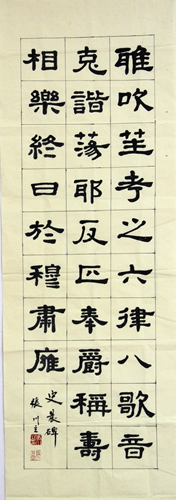 雅吹笙考之六律八歌音
克諧蕩耶反㔺奉爵稱壽
相樂終日於穆肅雍
史晨碑